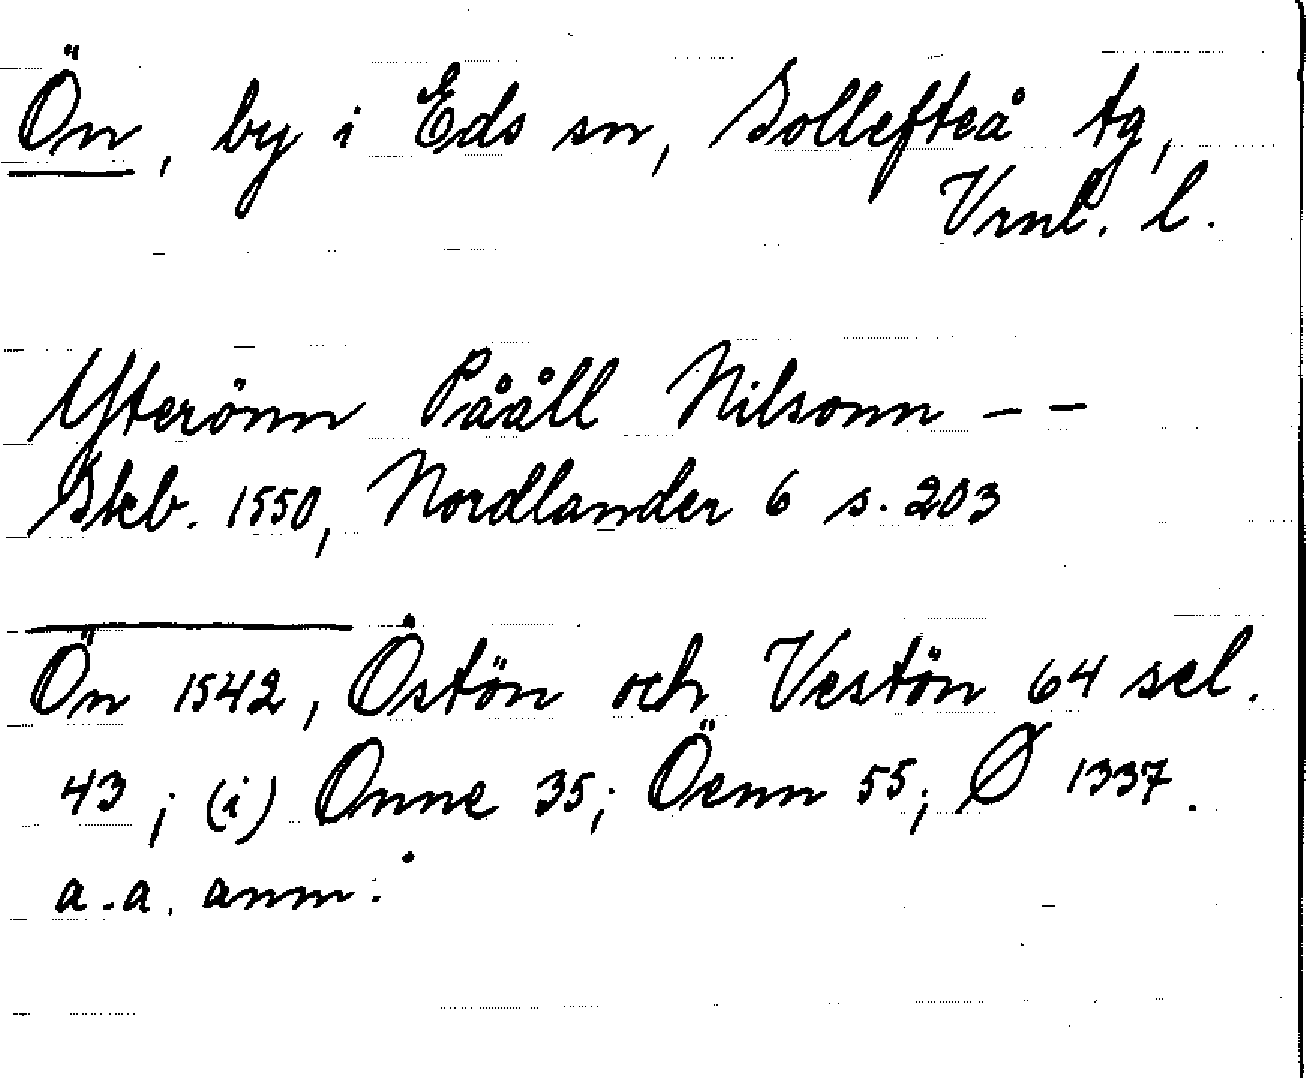 Ön, by i Eds sn, Sollefteå tg,
Vrnl. l.
Ytterönn Pååll Nilsonn – –
Skb. 1550, Nordlander 6 s. 203
Ön 1542, Östön och Vestön 64 sel.
43; (i) Onne 35; Öenn 55; Ø 1337.
a. a. anm.